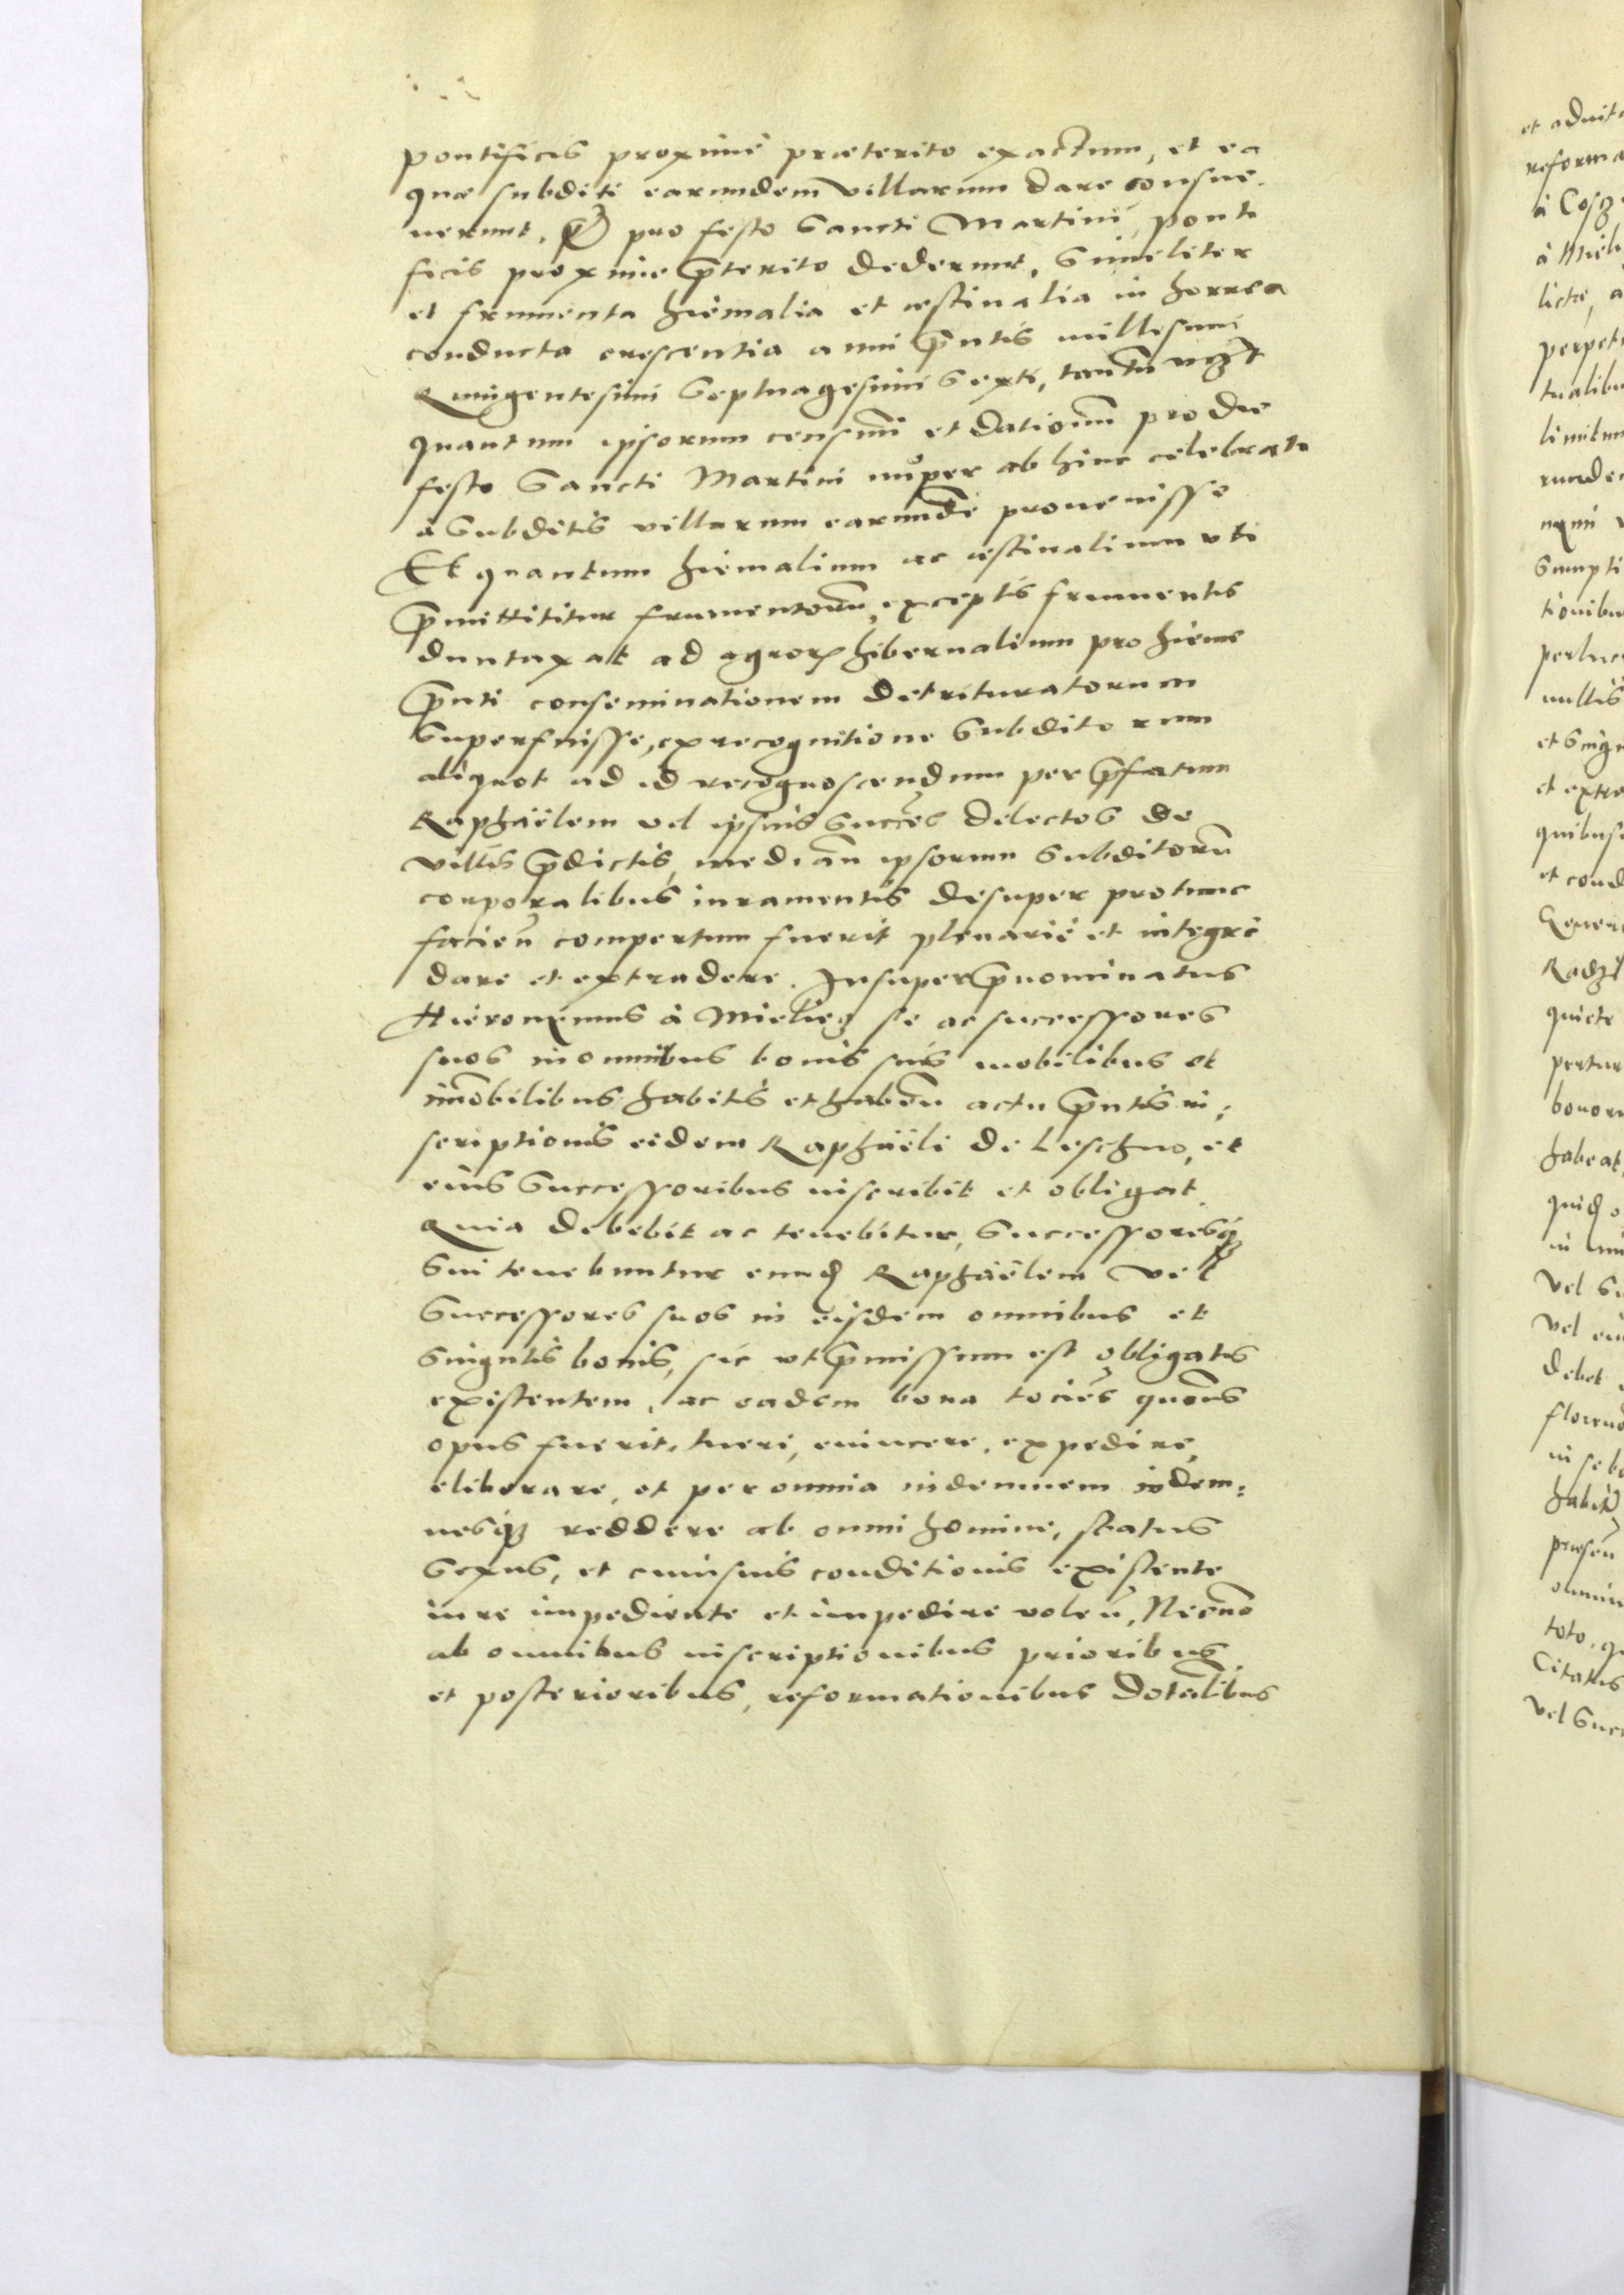 pontificis proximè præterito exactum, et ea
quæ subditi earundem villarum dare consue-
uerunt. pro festo Sancti Martini Ponti
ficis proxime p̃terito dederunt, Similiter
et frumenta hiemalia et æstiualia in horrea
conducta crescentia anni p̃ntis millesimi
Quingentesimi Septuagesimi Sexti, tantũ
quantum ipsorum censuũ et dationũ pro die
festo Sancti Martini nuper ab hinc celebrato
à Subditis villarum earundẽ prouenisse
Et quantum hiemalium ac æstiualium vti
p̃mittititur frumentorũ, exceptis frumentis
duntaxat ad agroꝝ hibernalium pro hieme
p̃nti conseminationem detrituratorum
Superfuisse, ex recognitione Subditorum
aliquot ad id recognoscendum per p̃fatum
Raphaëlem vel ipsius Succes̃ delectos de
villis p̃dictis, median̄ ipsorum Subditorũ
corporalibus iuramentis desuper protunc
facien̄ compertum fuerit plenariè et integrè
dare et extradere. Insuper p̃nominatus
Hieronymus à Mieliecz se ac successores
suos in omnibus bonis suis mobilibus et
im̃obilibus habitis et haben̄ actu p̃ntis in:
scriptionis eidem Raphaëli de Leschno, et
eius Successoribus inscribit et obligat.
Quia debebit ac tenebitur, Successoresqꝫ
Sui tenebuntur eund̃ Raphaëlem vel
Successores suos in eisdem omnibus et
Singulis bonis, sic vt p̃missum est obligatis
existentem, ac eadem bona tocies quocies
opus fuerit, tueri, euincere, expedire,
eliberare, et per omnia indemnem indem:
nesqꝫ reddere ab omni homine, status
Sexus, et cuiusuis conditionis existente
iure impediente et impedire volen̄, Necnõ
ab omnibus inscriptionibus prioribus
et posterioribus, reformationibus Dotalibus
et aduita
reforma
à Cosz
à Miel
licte, a
perpet
tualibu
limitum
runde
nqui
Sumpti
tionibu
nullis
et Singu
et extra
quibus
et cond
Gener
Radzi
quiete
pertur
bonoru
habeat,
quid̃ o
Vel Su
Vel eiu
debet
floreno
in se
habit
praesen̄
omni
toto, q
Citatus
Vel Succ